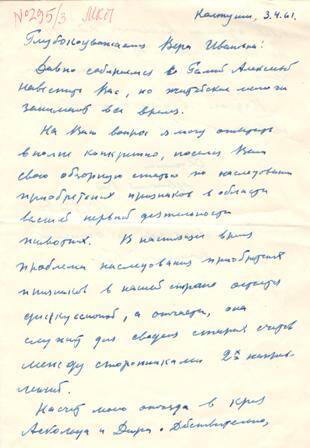 №295/3 МКП
Колтуши, 3.4.61.
Глубокоуважаемая Вера Ивановна!
Давно собираемся с Галей
навестить Вас, но житейские мелочи
занимают все время.
На Ваш вопрос я могу ответить
вполне конкретно, послав Вам
свою обзорную статью по наследованию
приобретенных признаков в области
высшей нервной деятельности
животных. В настоящее время
проблема наследования приобретенных
признаков в нашей стране остается
дискуссионной, а отчасти, она
служит для сведения старых счетов
между сторонниками 2х направ-
лений.
Насчет моего отъезда в